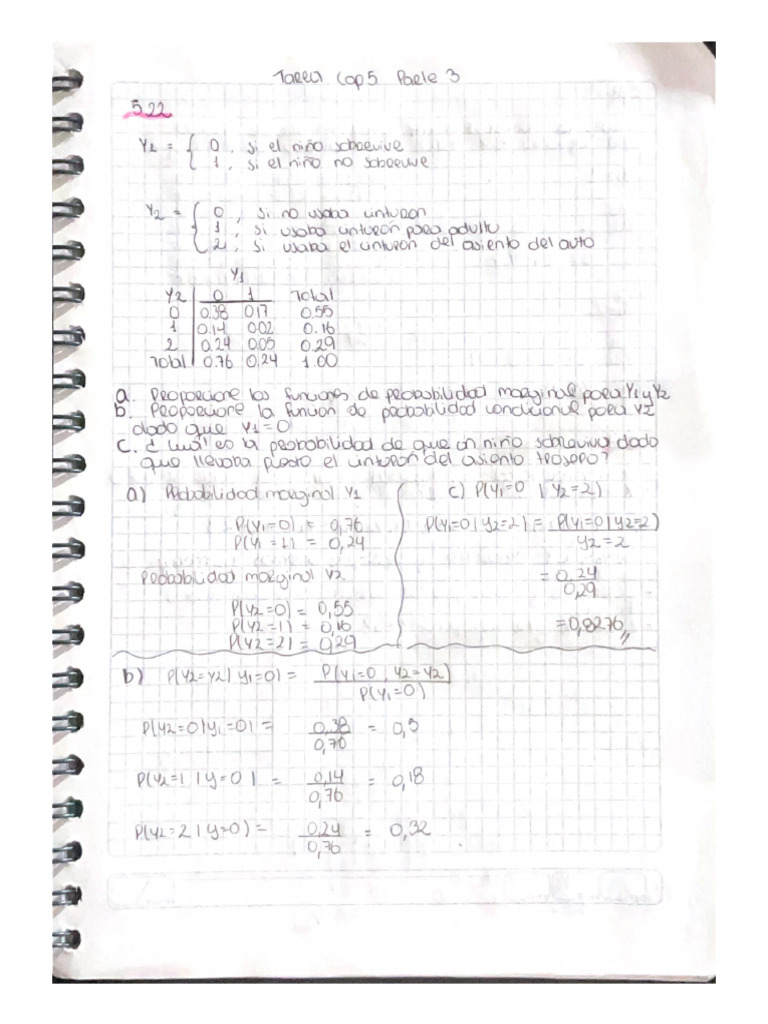 Tarea Cap 5 Parte 3
5.22
Y2 = { 0, si el niño sobrevive
1, si el niño no sobrevive
Y2 = { 0, si no usaba cinturon
1, si usaba cinturon para adulto
2, si usaba el cinturon del asiento del auto
Y1
Y2 0 1 Total
0 0.38 0.17 0.55
1 0.14 0.02 0.16
2 0.24 0.05 0.29
Total 0.76 0.24 1.00
a. Proporcione las funciones de probabilidad marginal para Y1 y Y2
b. Proporcione la funcion de probabilidad condicional para Y2
dado que Y1=0
c. ¿Cual es la probabilidad de que un niño sobreviva dado
que llevaba puesto el cinturon del asiento trasero?
a) Probabilidad marginal Y1
P(Y1=0) = 0,76
P(Y1=1) = 0,24
Probabilidad marginal Y2.
P(Y2=0) = 0,55
P(Y2=1) = 0,16
P(Y2=2) = 0,29
c) P(Y1=0 | Y2=2)
P(Y1=0 | Y2=2) = P(Y1=0 | Y2=2)
Y2=2
= 0.24
0,29
=0,8276
b) P(Y2=Y2 | Y1=0) = P(Y1=0, Y2=Y2)
P(Y1=0)
P(Y2=0 | Y1=0) = 0,38 = 0,5
0,76
P(Y2=1 | Y=0) = 0,14 = 0,18
0,76
P(Y2=2 | Y=0) = 0,24 = 0,32
0,76